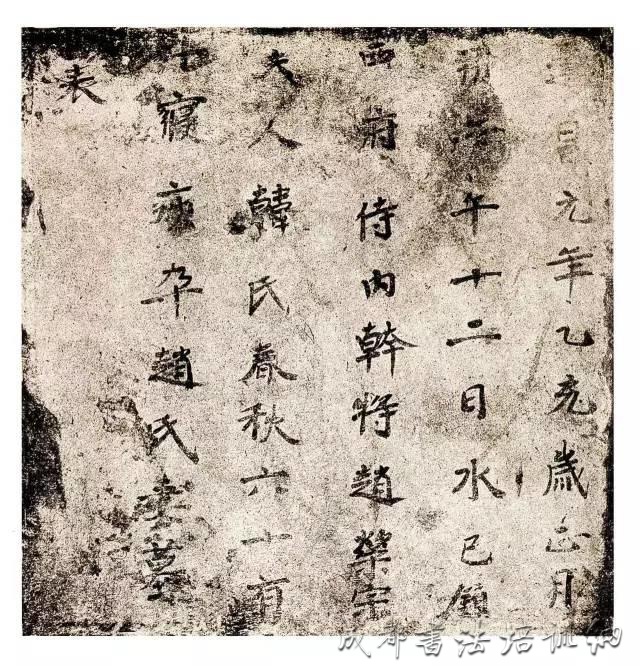 昌元年乙亥歲正月
朔午十二日水巳鎮
西府侍内幹將趙榮宗
夫人韓氏春秋六十有
七寢疾卒趙氏妻墓
表
成都書法培训網